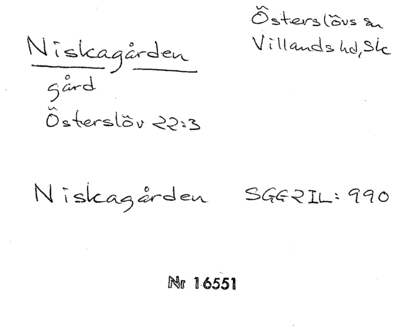 Österslövs sn
Villands hd, Sk
Niskagården
gård
Österslöv 22:3
Niskagården SGF2IL: 990
Nr 16551